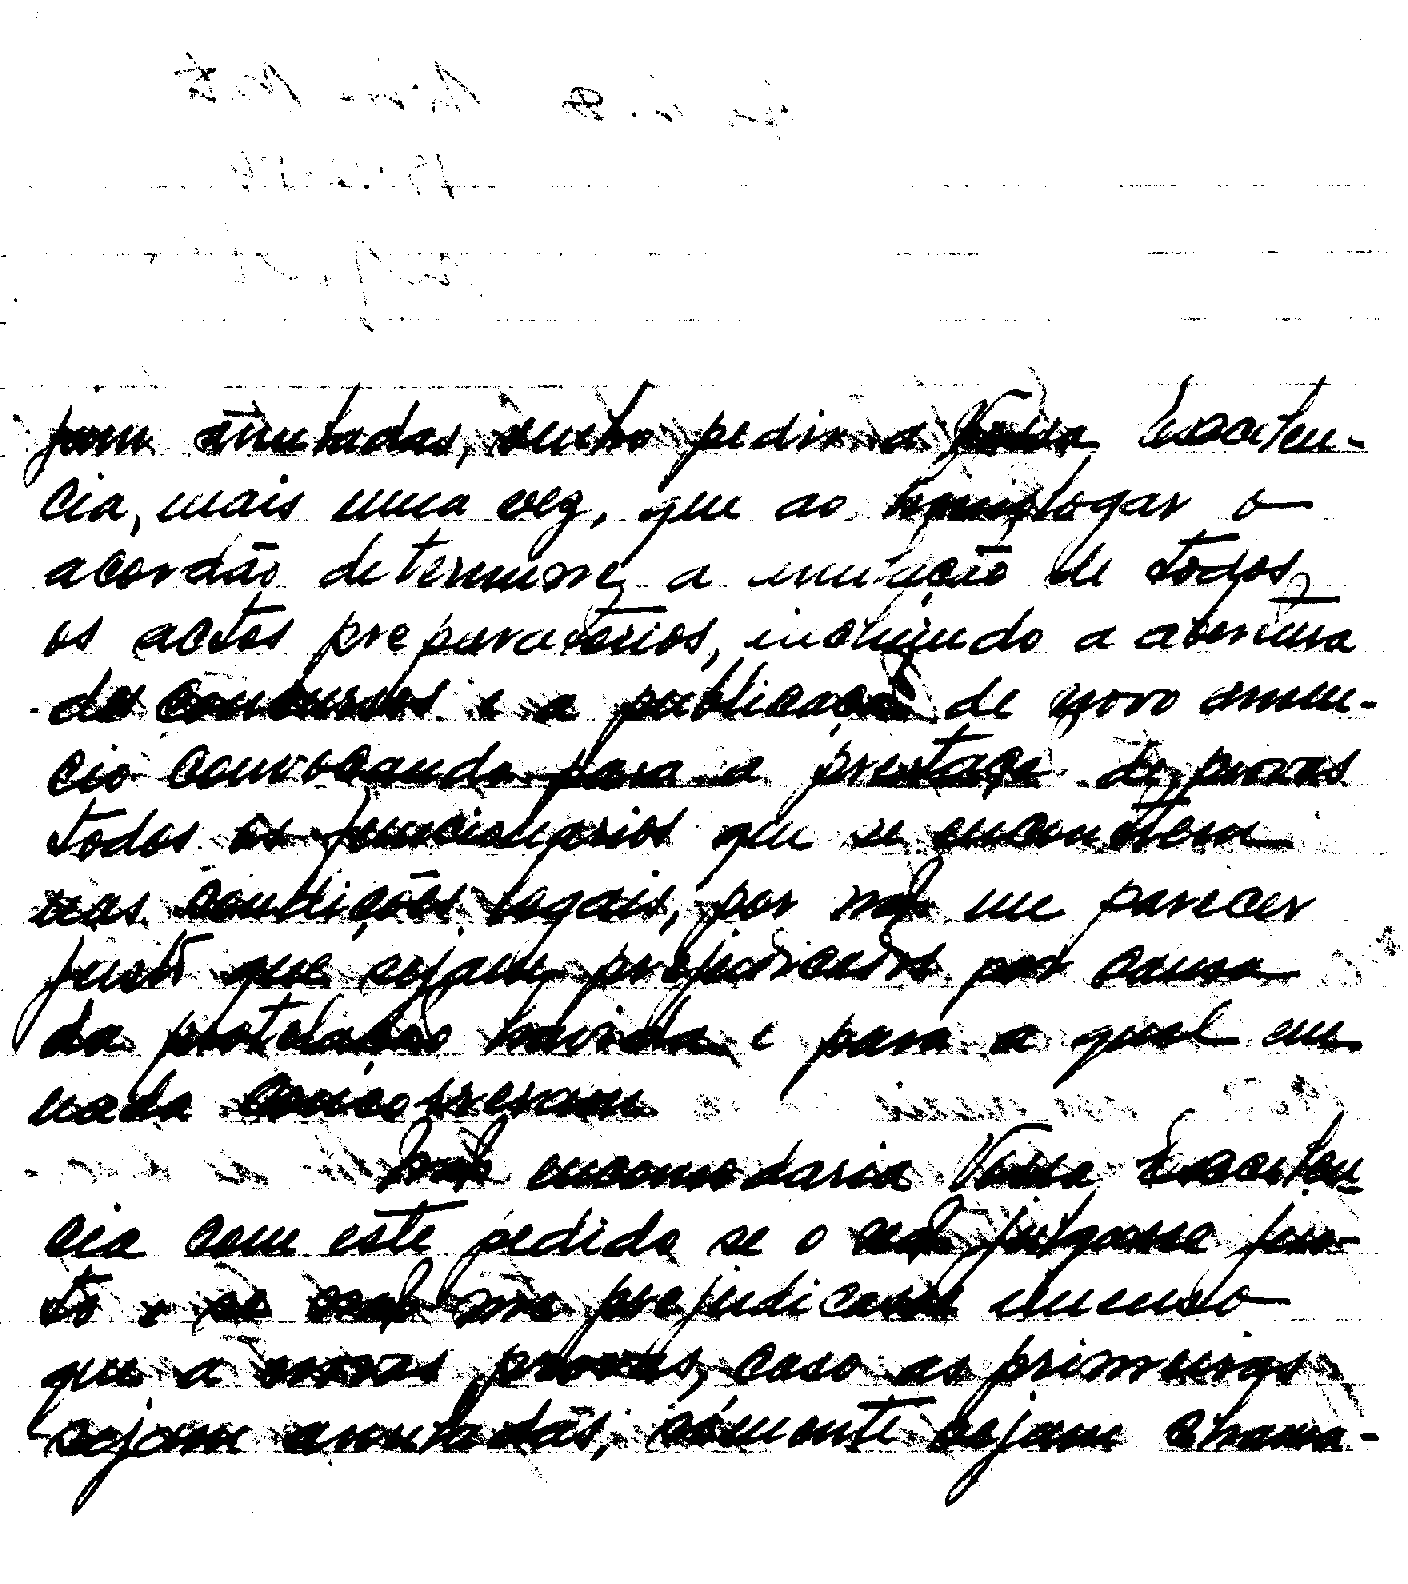 jam anuladas, venho pedir a Vossa Excelên-
cia, mais uma vez, que ao homologar o
acordão determine a anulação de todos
os actos preparatórios, incluindo a abertura
de concursos e a publicação de novo anun-
cio convocando para a prestação de provas
todos os funcionarios que se encontrem
nas condições legais, por não me parecer
justo que sejam prejudicados por causa
da protelação havida e para a qual em
nada concorreram
Não encomodaria Vossa Excelen-
cia com este pedido se o não julgasse jus-
to e se não me prejudicasse imenso
que a novas provas, caso as primeiras
sejam anuladas, sómente sejam chama-